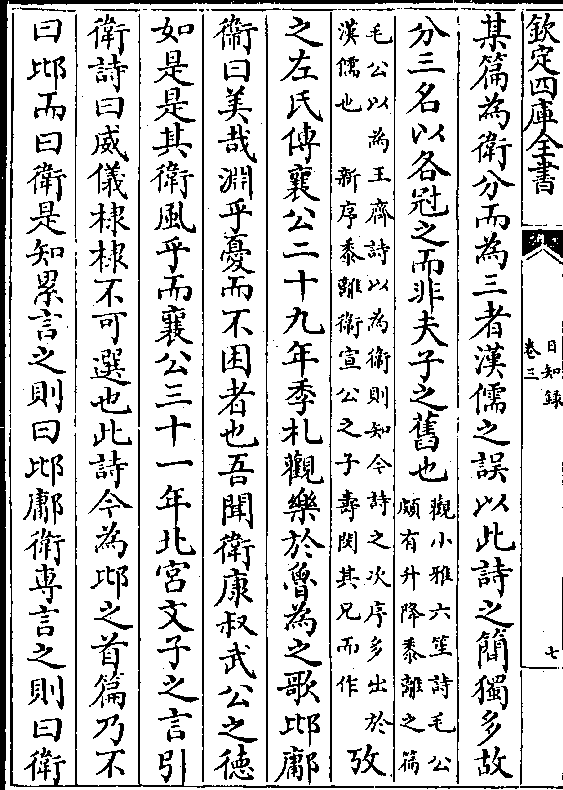 欽定四庫全書
日知錄
卷三
七
某篇為衛分而為三者漢儒之誤以此詩之簡獨多故
分三名以各冠之而非夫子之舊也
觀小雅六笙詩毛公
頗有升降黍離之篇
毛公以為王齊詩以為衛則知今詩之次序多出於
漢儒也　新序黍離衛宣公之子壽閔其兄而作
攷
之左氏傳襄公二十九年季札觀樂於魯為之歌邶鄘
衞曰美哉淵乎憂而不困者也吾聞衛康叔武公之德
如是是其衛風乎而襄公三十一年北宮文子之言引
衛詩曰威儀棣棣不可選也此詩今為邶之首篇乃不
曰邶而曰衛是知累言之則曰邶鄘衛専言之則曰衛